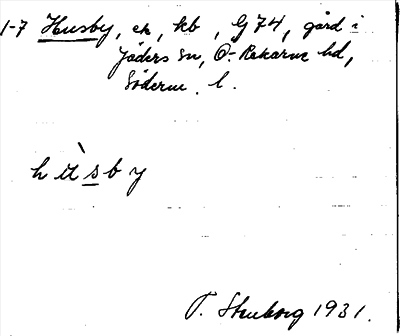 1-7 Husby, ek, kb, G 74, gård i
Jäders sn, Ö.-Rekarne hd,
Söderm. l.
hùsby
T. Stenborg 1931.